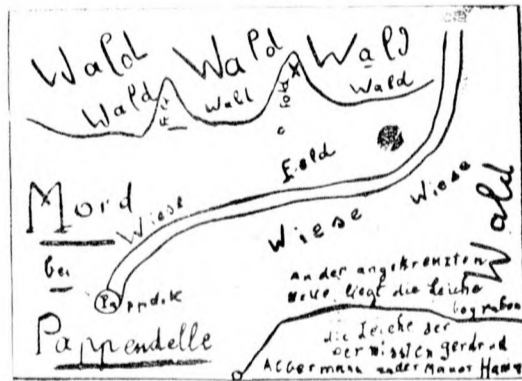 Wald Wald Wald
Wald Wald Wald
Feld
Mord
Wiese
Wiese
Wiese
Wald
bei
Pappendelle
An der angekreuzten
liegt die Leiche
begraben
die Leiche der
vermissten gerdrud
Albermann an der Mauer Haniel